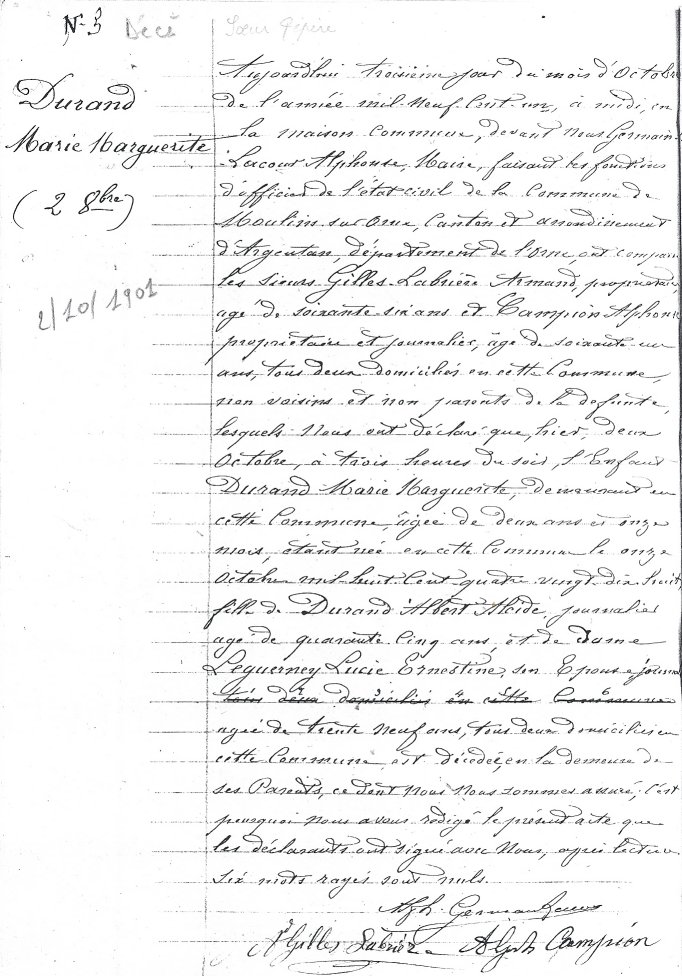 N° 3 Décé
Sœur Pépère
Durand
Marie Marguerite
(2 8bre)
2/10/1901
Aujourd'hui troisième jour du mois d'Octobre
de l'année mil-neuf-cent-un, à midi, en
la maison commune, devant Nous Germain-
Lacour Alphonse, Maire, faisant les fonctions
d'officier de l'état civil de la Commune de
Moulins sur Orne, Canton et arrondissement
d'Argentan, département de l'Orne, ont comparu
les sieurs Gilles-Labrière Armand, propriétaire,
agé de soixante six ans et Campion Alphonse
propriétaire et journalier, âgé de soixante un
ans, tous deux domiciliés en cette Commune,
non voisins et non parents de la défunte,
lesquels Nous ont déclaré que, hier, deux
Octobre, à trois heures du soir, l'Enfant
Durand Marie Marguerite, demeurant en
cette Commune, âgée de deux ans et onze
mois, étant née en cette Commune le onze
Octobre mil huit cent quatre vingt dix huit,
fille de Durand Albert Alcide, journalier
agé de quarante cinq ans, et de dame
Leguerney Lucie Ernestine, son Epouse, journa
tous deux domiciliés en cette Commune
agée de trente neuf ans, tous deux domiciliés en
cette Commune est décédée, en la demeure de
ses Parents, ce dont Nous Nous sommes assuré; c'est
pourquoi Nous avons rédigé le présent acte que
les déclarants ont signé avec Nous, après lecture
Six mots rayés sont nuls.
Alph. Germain Lacour
A Gilles Labrière A Alph Campion